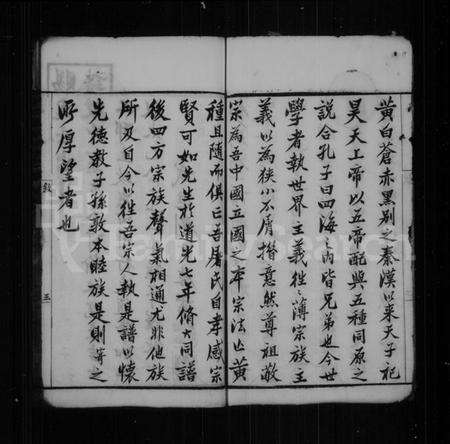 黃白蒼赤黑別之秦漢以來天子祀
昊天上帝以五帝配與五種同原之
說合孔子曰四海之內皆兄弟也今世
學者執世界主義往往薄宗族主
義以為狹小不屑措意然尊祖敬
宗為吾中國立國之本宗法亡黃
種且隨而俱亡吾屠氏自孝感宗
賢可如先生於道光七年脩大同譜
後四方宗族聲氣相通尤非他族
所及自今以往吾宗人執是譜以懷
先德教子孫敦本睦族是則予之
所厚望者也
敘
三
FamilySearch